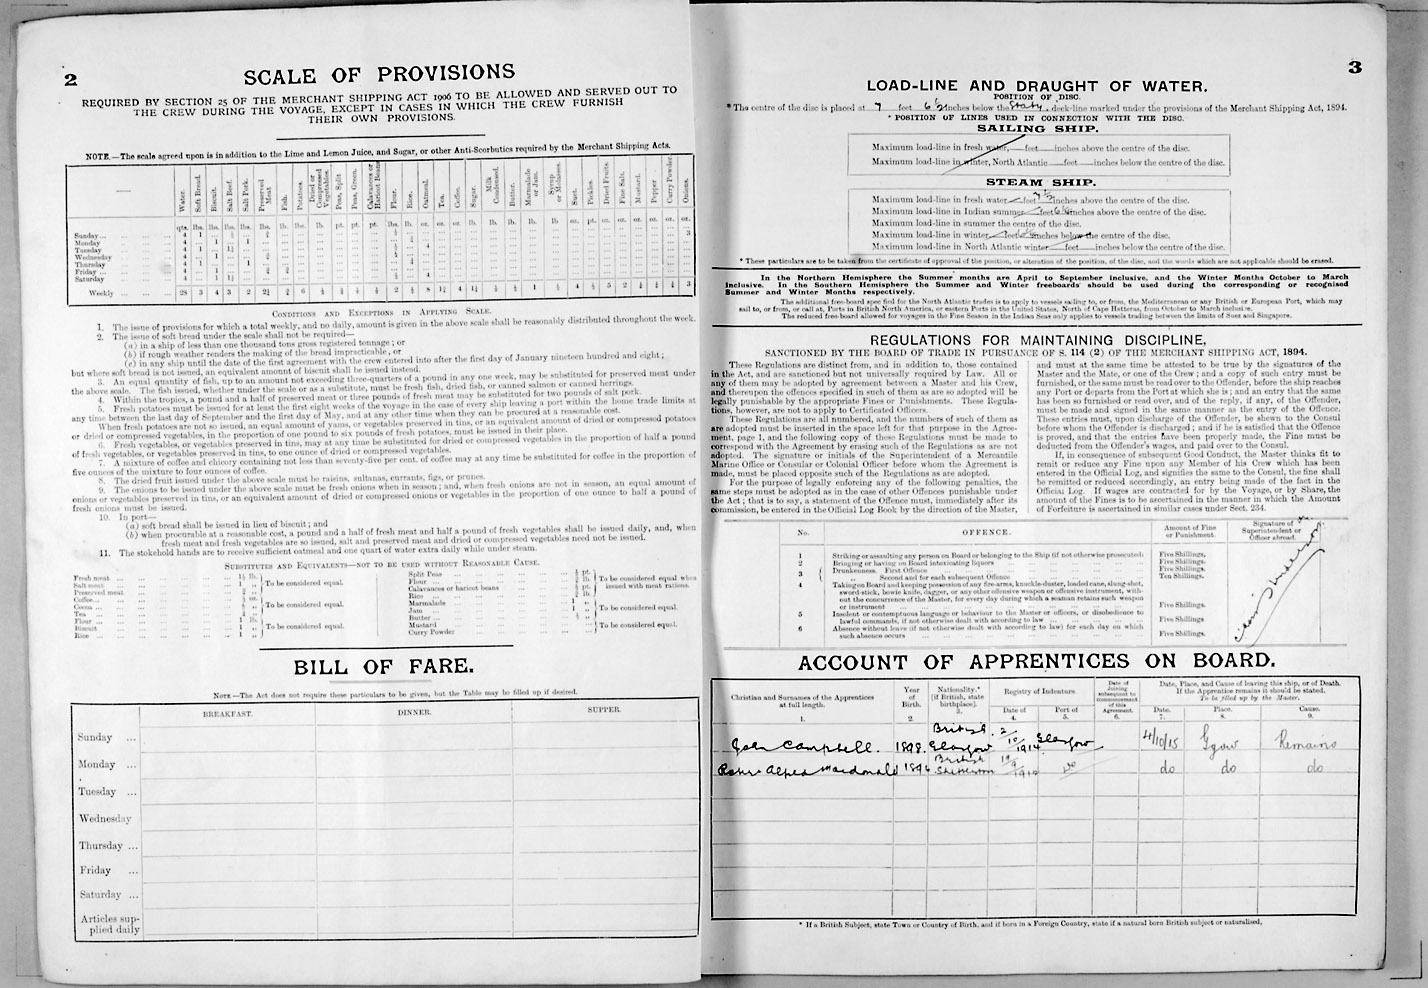 2
SCALE OF PROVISIONS
REQUIRED BY SECTION 25 OF THE MERCHANT SHIPPING ACT 1906 TO BE ALLOWED AND SERVED OUT TO
THE CREW DURING THE VOYAGE, EXCEPT IN CASES IN WHICH THE CREW FURNISH
THEIR OWN PROVISIONS.
NOTE.—The scale agreed upon is in addition to the Lime and Lemon Juice, and Sugar, or other Anti-Scorbutics required by the Merchant Shipping Acts.
Water. Soft Bread. Biscuit. Salt Beef. Salt Pork. Preserved Meat. Fish. Potatoes. Dried or Compressed Vegetables. Peas, Split Peas, Green. Calavances or Haricot Beans Flour. Rice. Oatmeal. Tea. Coffee. Sugar. Milk Condensed. Butter. Marmalade or Jam. Syrup or Molasses. Suet. Pickles. Dried Fruits. Fine Salt. Mustard. Pepper Curry Powder. Onions.
Sunday
Monday
Tuesday
Wednesday
Thursday
Friday
Saturday
Weekly
CONDITIONS AND EXCEPTIONS IN APPLYING SCALE.
1. The issue of provisions for which a total weekly, and no daily, amount is given in the above scale shall be reasonably distributed throughout the week.
2. The issue of soft bread under the scale shall not be required—
(a) in a ship of less than one thousand tons gross registered tonnage; or
(b) if rough weather renders the making of the bread impracticable, or
(c) in any ship until the date of the first agreement with the crew entered into after the first day of January nineteen hundred and eight;
but where soft bread is not issued, an equivalent amount of biscuit shall be issued instead.
3. An equal quantity of fish, up to an amount not exceeding three-quarters of a pound in any one week, may be substituted for preserved meat under
the above scale. The fish issued, whether under the scale or as a substitute, must be fresh fish, dried fish, or canned salmon or canned herrings.
4. Within the tropics, a pound and a half of preserved meat or three pounds of fresh meat may be substituted for two pounds of salt pork.
5. Fresh potatoes must be issued for at least the first eight weeks of the voyage in the case of every ship leaving a port within the home trade limits at
any time between the last day of September and the first day of May, and at any other time when they can be procured at a reasonable cost.
When fresh potatoes are not so issued, an equal amount of yams, or vegetables preserved in tins, or an equivalent amount of dried or compressed potatoes
or dried or compressed vegetables, in the proportion of one pound to six pounds of fresh potatoes, must be issued in their place.
6. Fresh vegetables, or vegetables preserved in tins, may at any time be substituted for dried or compressed vegetables in the proportion of half a pound
of fresh vegetables, or vegetables preserved in tins, to one ounce of dried or compressed vegetables.
7. A mixture of coffee and chicory containing not less than seventy-five per cent. of coffee may at any time be substituted for coffee in the proportion of
five ounces of the mixture to four ounces of coffee.
8. The dried fruit issued under the above scale must be raisins, sultanas, currants, figs, or prunes.
9. The onions to be issued under the above scale must be fresh onions when in season; and, when fresh onions are not in season, an equal amount of
onions or vegetables preserved in tins, or an equivalent amount of dried or compressed onions or vegetables in the proportion of one ounce to half a pound of
fresh onions must be issued.
10. In port—
(a) soft bread shall be issued in lieu of biscuit; and
(b) when procurable at a reasonable cost, a pound and a half of fresh meat and half a pound of fresh vegetables shall be issued daily, and, when
fresh meat and fresh vegetables are so issued, salt and preserved meat and dried or compressed vegetables need not be issued.
11. The stokehold hands are to receive sufficient oatmeal and one quart of water extra daily while under steam.
SUBSTITUTES AND EQUIVALENTS—NOT TO BE USED WITHOUT REASONABLE CAUSE.
Fresh meat
Salt meat
Preserved meat
To be considered equal.
Coffee
Cocoa
Tea
To be considered equal.
Flour
Biscuit
Rice
To be considered equal.
Split Peas
Flour
Calavances or haricot beans
Rice
To be considered equal when issued with meat rations.
Marmalade
Jam
Butter
To be considered equal.
Mustard
Curry Powder
To be considered equal.
BILL OF FARE.
NOTE—The Act does not require these particulars to be given, but the Table may be filled up if desired.
BREAKFAST. DINNER. SUPPER.
Sunday
Monday
Tuesday
Wednesday
Thursday
Friday
Saturday
Articles sup-
plied daily
3
LOAD-LINE AND DRAUGHT OF WATER.
POSITION OF DISC.
* The centre of the disc is placed at 7 feet 6½ inches below the Staty. deck-line marked under the provisions of the Merchant Shipping Act, 1894.
* POSITION OF LINES USED IN CONNECTION WITH THE DISC.
SAILING SHIP.
Maximum load-line in fresh water, feet inches above the centre of the disc.
Maximum load-line in winter, North Atlantic feet inches below the centre of the disc.
STEAM SHIP.
Maximum load-line in fresh water feet inches above the centre of the disc.
Maximum load-line in Indian summer feet inches above the centre of the disc.
Maximum load-line in summer the centre of the disc.
Maximum load-line in winter feet inches below the centre of the disc.
Maximum load-line in North Atlantic winter feet inches below the centre of the disc.
* These particulars are to be taken from the certificate of approval of the position, or alteration of the position, of the disc, and the words which are not applicable should be erased.
In the Northern Hemisphere the Summer months are April to September inclusive, and the Winter Months October to March
inclusive. In the Southern Hemisphere the Summer and Winter freeboards should be used during the corresponding or recognised
Summer and Winter Months respectively.
The additional free-board specified for the North Atlantic trades is to apply to vessels sailing to, or from, the Mediterranean or any British or European Port, which may
sail to, or from, or call at, Ports in British North America, or eastern Ports in the United States, North of Cape Hatteras, from October to March inclusive.
The reduced free-board allowed for voyages in the Fine Season in the Indian Seas only applies to vessels trading between the limits of Suez and Singapore.
REGULATIONS FOR MAINTAINING DISCIPLINE,
SANCTIONED BY THE BOARD OF TRADE IN PURSUANCE OF S. 114 (2) OF THE MERCHANT SHIPPING ACT, 1894.
These Regulations are distinct from, and in addition to, those contained
in the Act, and are sanctioned but not universally required by Law. All or
any of them may be adopted by agreement between a Master and his Crew,
and thereupon the offences specified in such of them as are so adopted will be
legally punishable by the appropriate Fines or Punishments. These Regula-
tions, however, are not to apply to Certificated Officers.
These Regulations are all numbered, and the numbers of such of them as
are adopted must be inserted in the space left for that purpose in the Agree-
ment, page 1, and the following copy of these Regulations must be made to
correspond with the Agreement by erasing such of the Regulations as are not
adopted. The signature or initials of the Superintendent of a Mercantile
Marine Office or Consular or Colonial Officer before whom the Agreement is
made, must be placed opposite such of the Regulations as are adopted.
For the purpose of legally enforcing any of the following penalties, the
same steps must be adopted as in the case of other Offences punishable under
the Act; that is to say, a statement of the Offence must, immediately after its
commission, be entered in the Official Log Book by the direction of the Master,
and must at the same time be attested to be true by the signatures of the
Master and the Mate, or one of the Crew; and a copy of such entry must be
furnished, or the same must be read over to the Offender, before the ship reaches
any Port or departs from the Port at which she is; and an entry that the same
has been so furnished or read over, and of the reply, if any, of the Offender,
must be made and signed in the same manner as the entry of the Offence.
These entries must, upon discharge of the Offender, be shewn to the Consul
before whom the Offender is discharged; and if he is satisfied that the Offence
is proved, and that the entries have been properly made, the Fine must be
deducted from the Offender's wages, and paid over to the Consul.
If, in consequence of subsequent Good Conduct, the Master thinks fit to
remit or reduce any Fine upon any Member of his Crew which has been
entered in the Official Log, and signifies the same to the Consul, the fine shall
be remitted or reduced accordingly, an entry being made of the fact in the
Official Log. If wages are contracted for by the Voyage, or by Share, the
Amount of the Fines is to be ascertained in the manner in which the Amount
of Forfeiture is ascertained in similar cases under Sect. 234.
No. OFFENCE. Amount of Fine or Punishment. Signature of Superintendent or Officer abroad.
1 Striking or assaulting any person on Board or belonging to the Ship (if not otherwise prosecuted) Five Shillings.
2 Bringing or having on Board intoxicating liquors Five Shillings.
3 Drunkenness. First Offence Five Shillings.
Second and for each subsequent Offence Ten Shillings.
4 Taking on Board and keeping possession of any fire-arms, knuckle-duster, loaded cane, slung-shot,
sword-stick, bowie knife, dagger, or any other offensive weapon or offensive instrument, with-
out the concurrence of the Master, for every day during which a seaman retains such weapon
or instrument Five Shillings.
5 Insolent or contemptuous language or behaviour to the Master or officers, or disobedience to
lawful commands, if not otherwise dealt with according to law Five Shillings.
6 Absence without leave (if not otherwise dealt with according to law) for each day on which
such absence occurs Five Shillings
ACCOUNT OF APPRENTICES ON BOARD.
Christian and Surnames of the Apprentices at full length. 1.
Year of Birth. 2.
Nationality.* [if British, state birthplace]. 3.
Registry of Indenture.
Date of 4.
Port of 5.
Date of Joining subsequent to commencement of this Agreement. 6.
Date, Place, and Cause of leaving this ship, or of Death.
If the Apprentice remains it should be stated.
To be filled up by the Master.
Date. 7. Place. 8. Cause. 9.
John Campbell. 1898. British Glasgow 2/10/1914 Glasgow 4/10/15 Ggow Remains
Alfred Macdonald British do do do do
* If a British Subject, state Town or Country of Birth, and if born in a Foreign Country, state if a natural born British subject or naturalised.